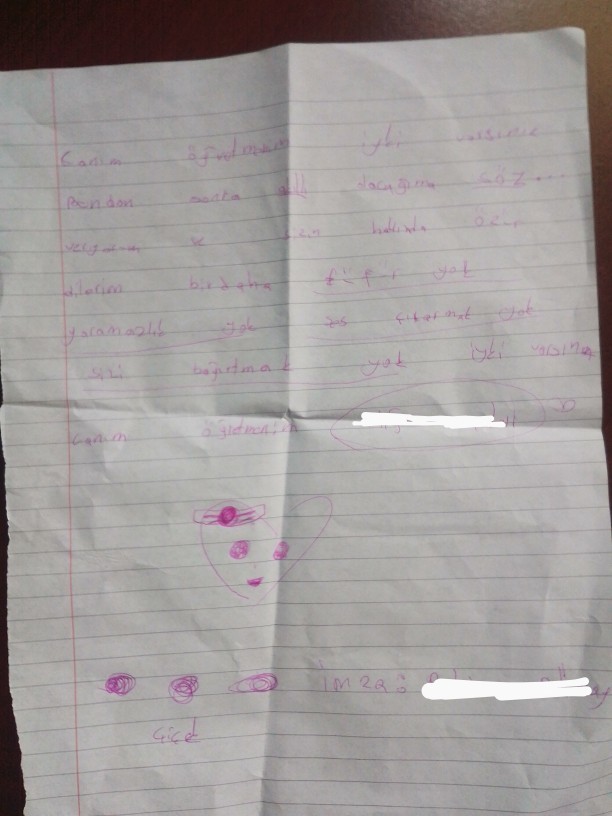 Canım öğretmenim iyki varsınız
Bendan sonra akıllı olacağıma SÖZ...
ve sizin hakkında özür
dilerim birdaha küfür yok
yaramazlık yok ses çıkarmak yok
sizi bağırtmak yok iyki varsınız
Canım öğretmenim
İmza:
Çiçek